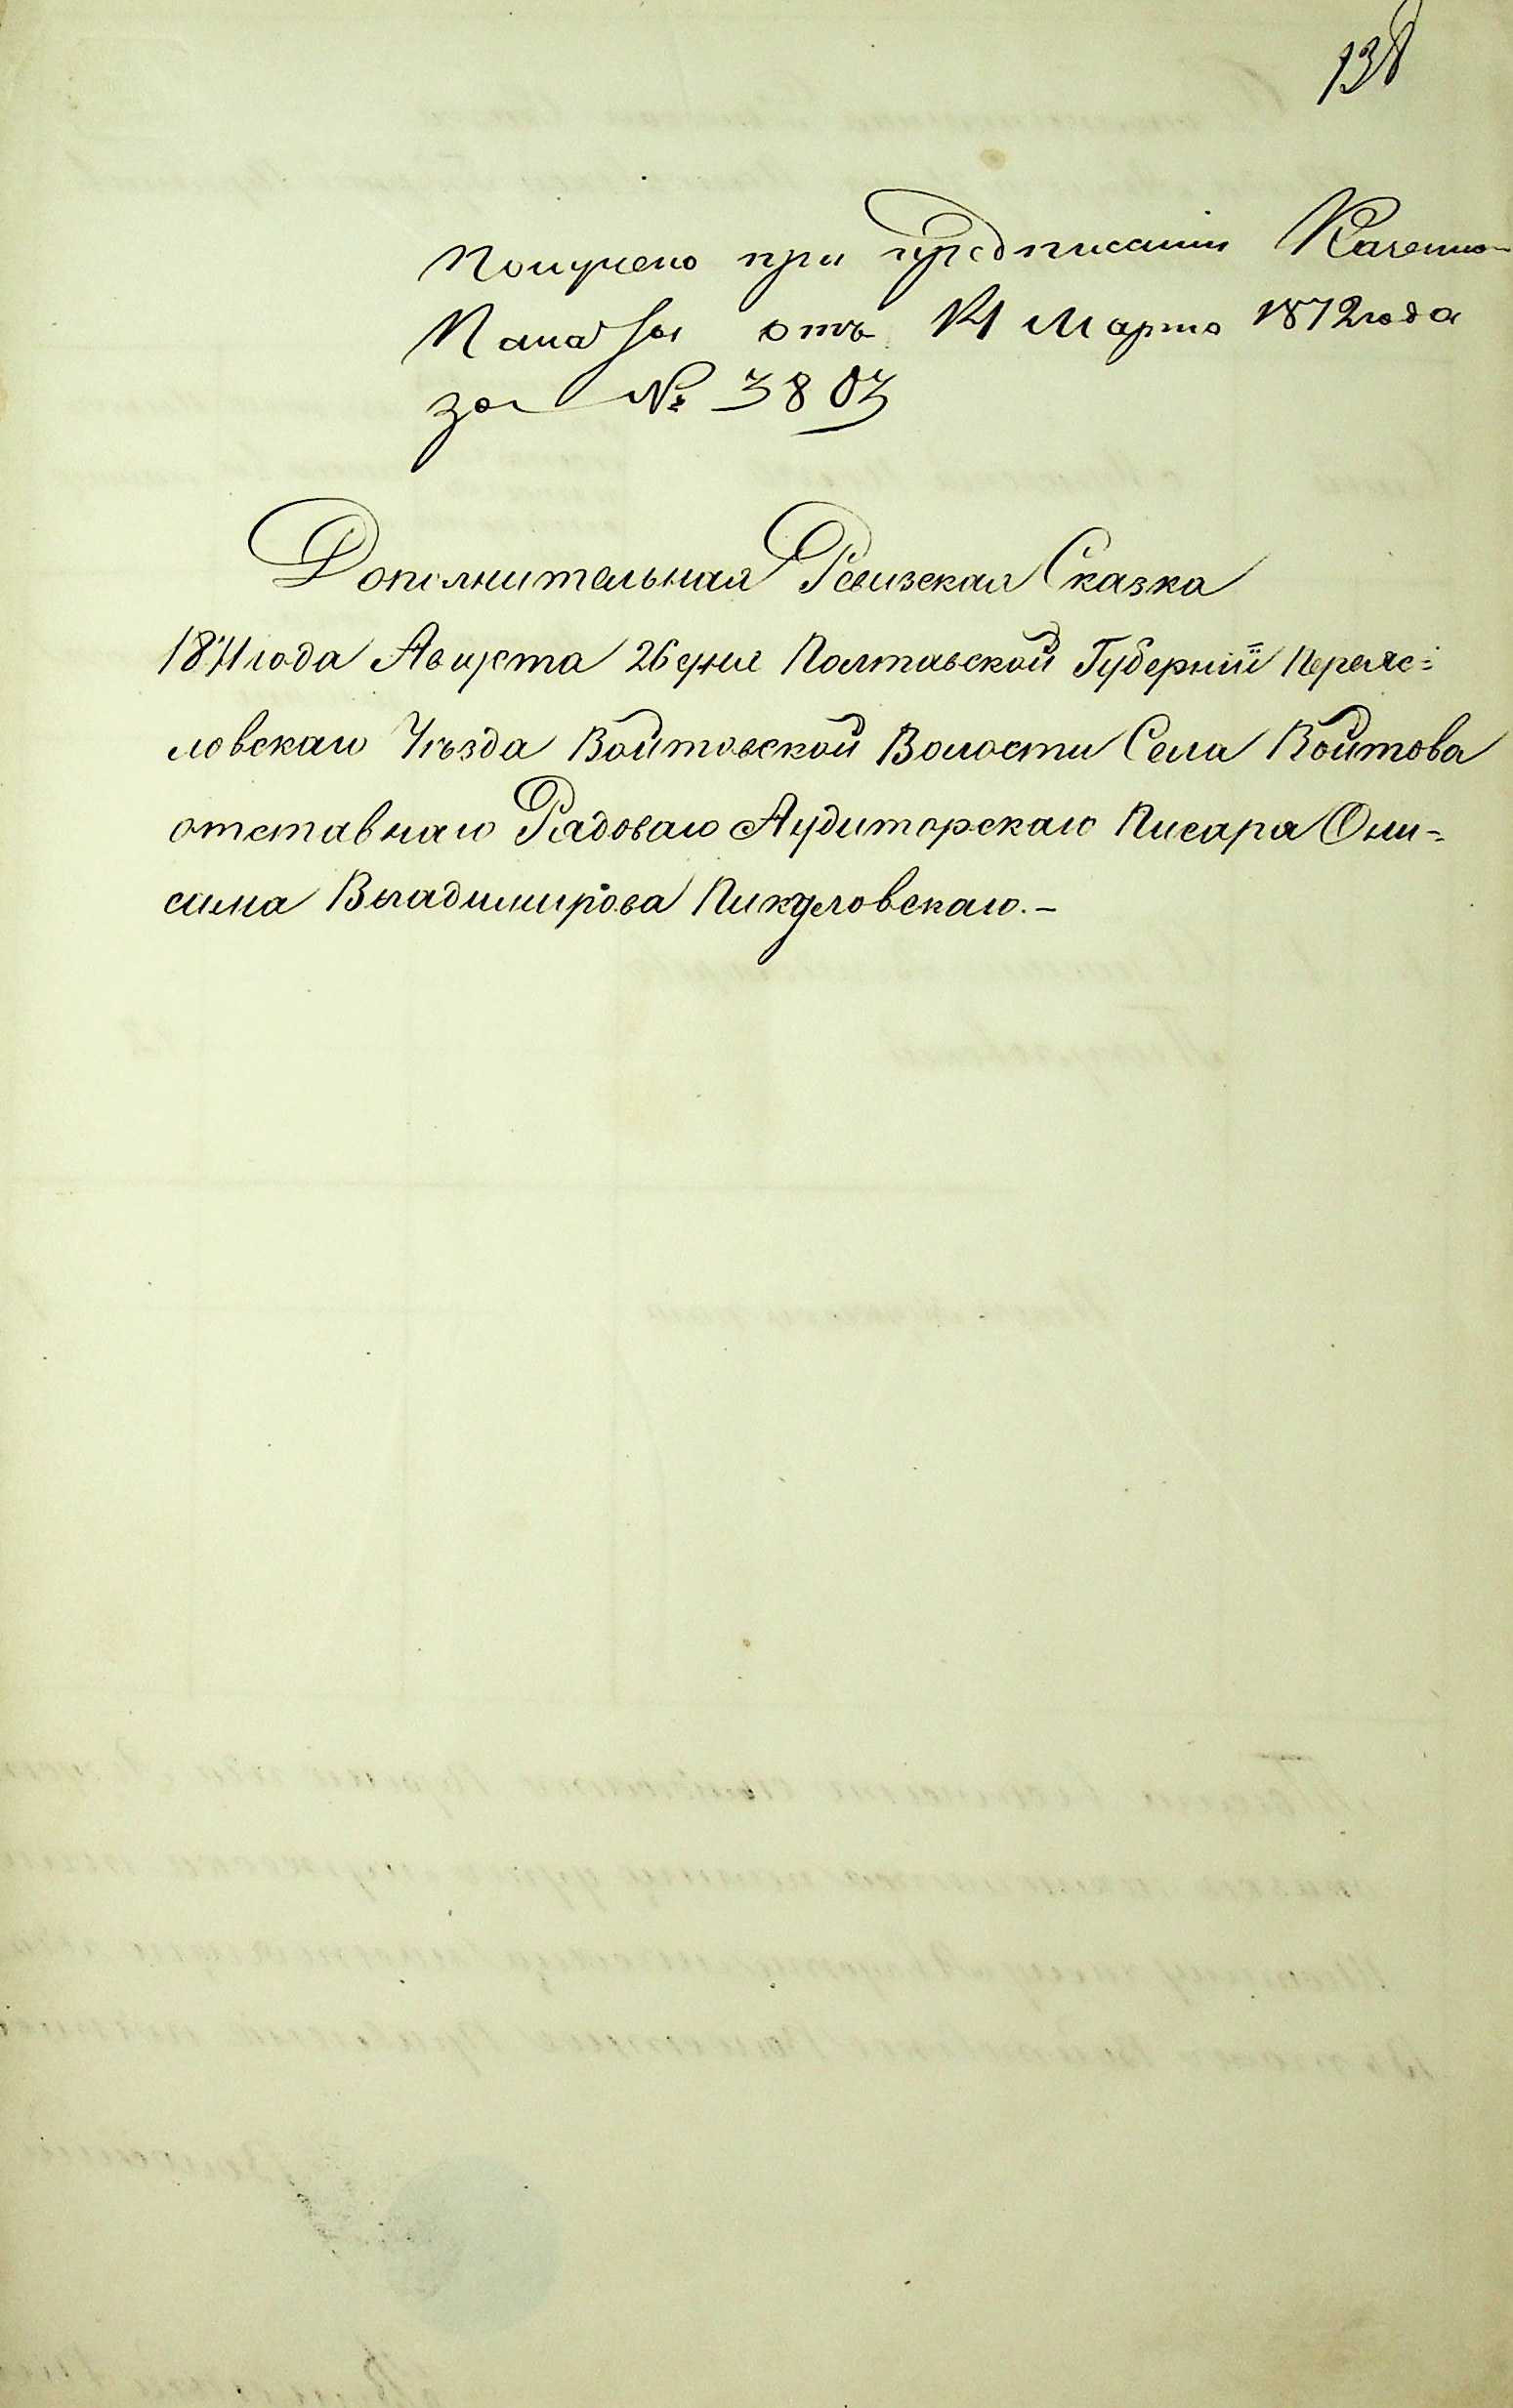 138
Получено при предписании Казенно
Палаты отъ 14 Марта 1872 года
за № 3803
Дополнительная Ревизская Сказка
1871 года Августа 26 дня Полтавской Губерніи Переяс=
ловскаго Уѣзда Войтовской Волости Села Войтова
отставнаго Рядоваго Аудиторскаго Писаря Они=
сима Владимирова Пикуловскаго.-